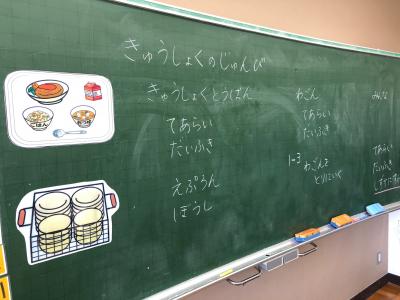 きゅうしょくのじゅんび
きゅうしょくとうばん
てあらい
だいふき
えぷろん
ぼうし
わごん
てあらい
だいふき
1-3 わごんを
とりにいく
みんな
てあらい
だいふき